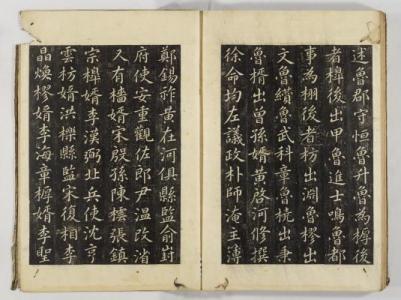 述魯郡守恒魯升魯為樗後
者樺後出甲魯進士鳴魯都
事為棚後者枋出淵魯樛出
文魯纘魯武科章魯杭出秉
魯榗出曾孫婿黃啓河修撰
徐命均左議政朴師淹主簿
鄭錫祚黃在河俱縣監俞對
府使安重觀佐郎尹溫改渻
又有樯婿宋殷孫陳橒張鎮
宗樺婿李漢弼北兵使沈亨
雲枋婿洪櫟縣監宋復相李
晶煥樛婿李海章樗婿李聖